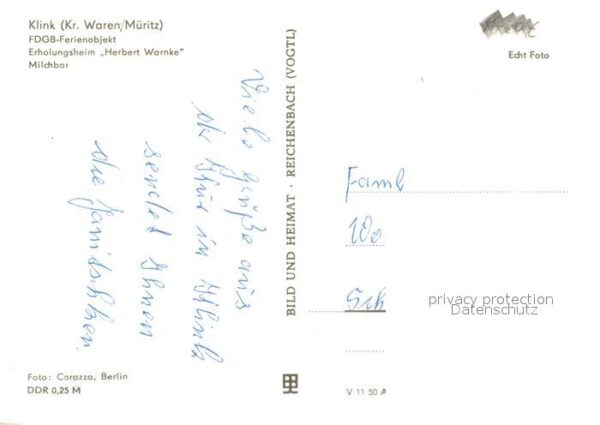 Klink (Kr. Waren/Müritz)
FDGB-Ferienobjekt
Erholungsheim „Herbert Warnke"
Milchbar
Viele Grüße aus
der Kur in Klink
sendet Ihnen
die
Foto: Corazza, Berlin
DDR 0,25 M
BILD UND HEIMAT · REICHENBACH (VOGTL)
Echt Foto
Faml
Sch
privacy protection
Datenschutz
V 11 50 A